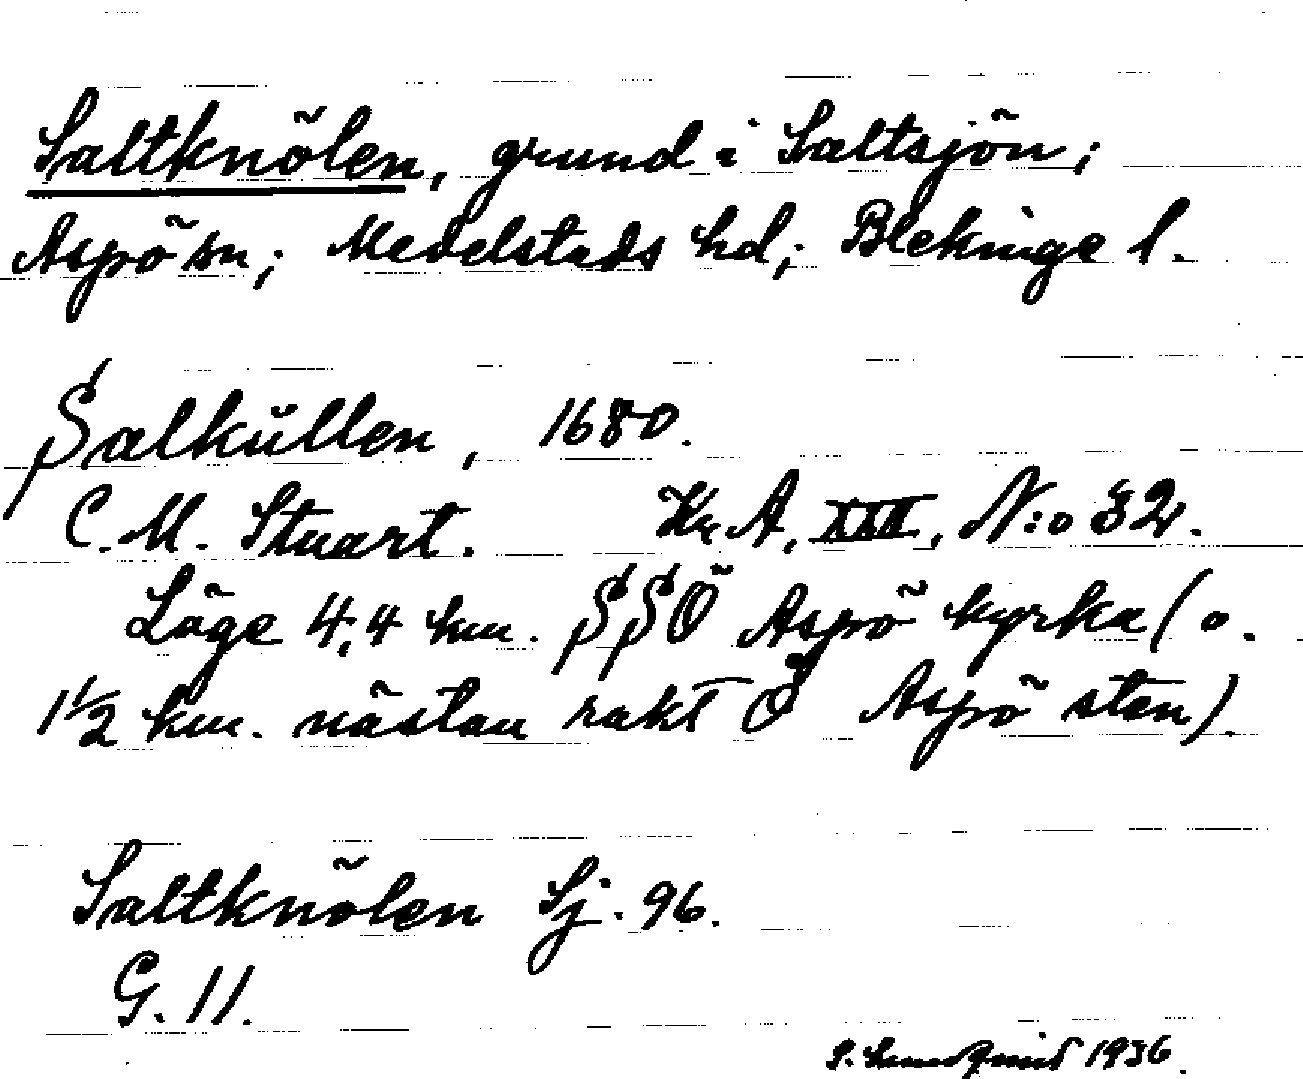 Saltknölen, grund i Saltsjön;
Aspö sn; Medelstads hd; Blekinge l.
Salküllen, 1680.
C. M. Stuart. Kr. A, XXII, N:o 32.
Läge 4,4 km. SSÖ Aspö kyrka (o.
1 1/2 km. nästan rakt Ö Aspö sten).
Saltknölen Sj. 96.
G. 11.
1936.